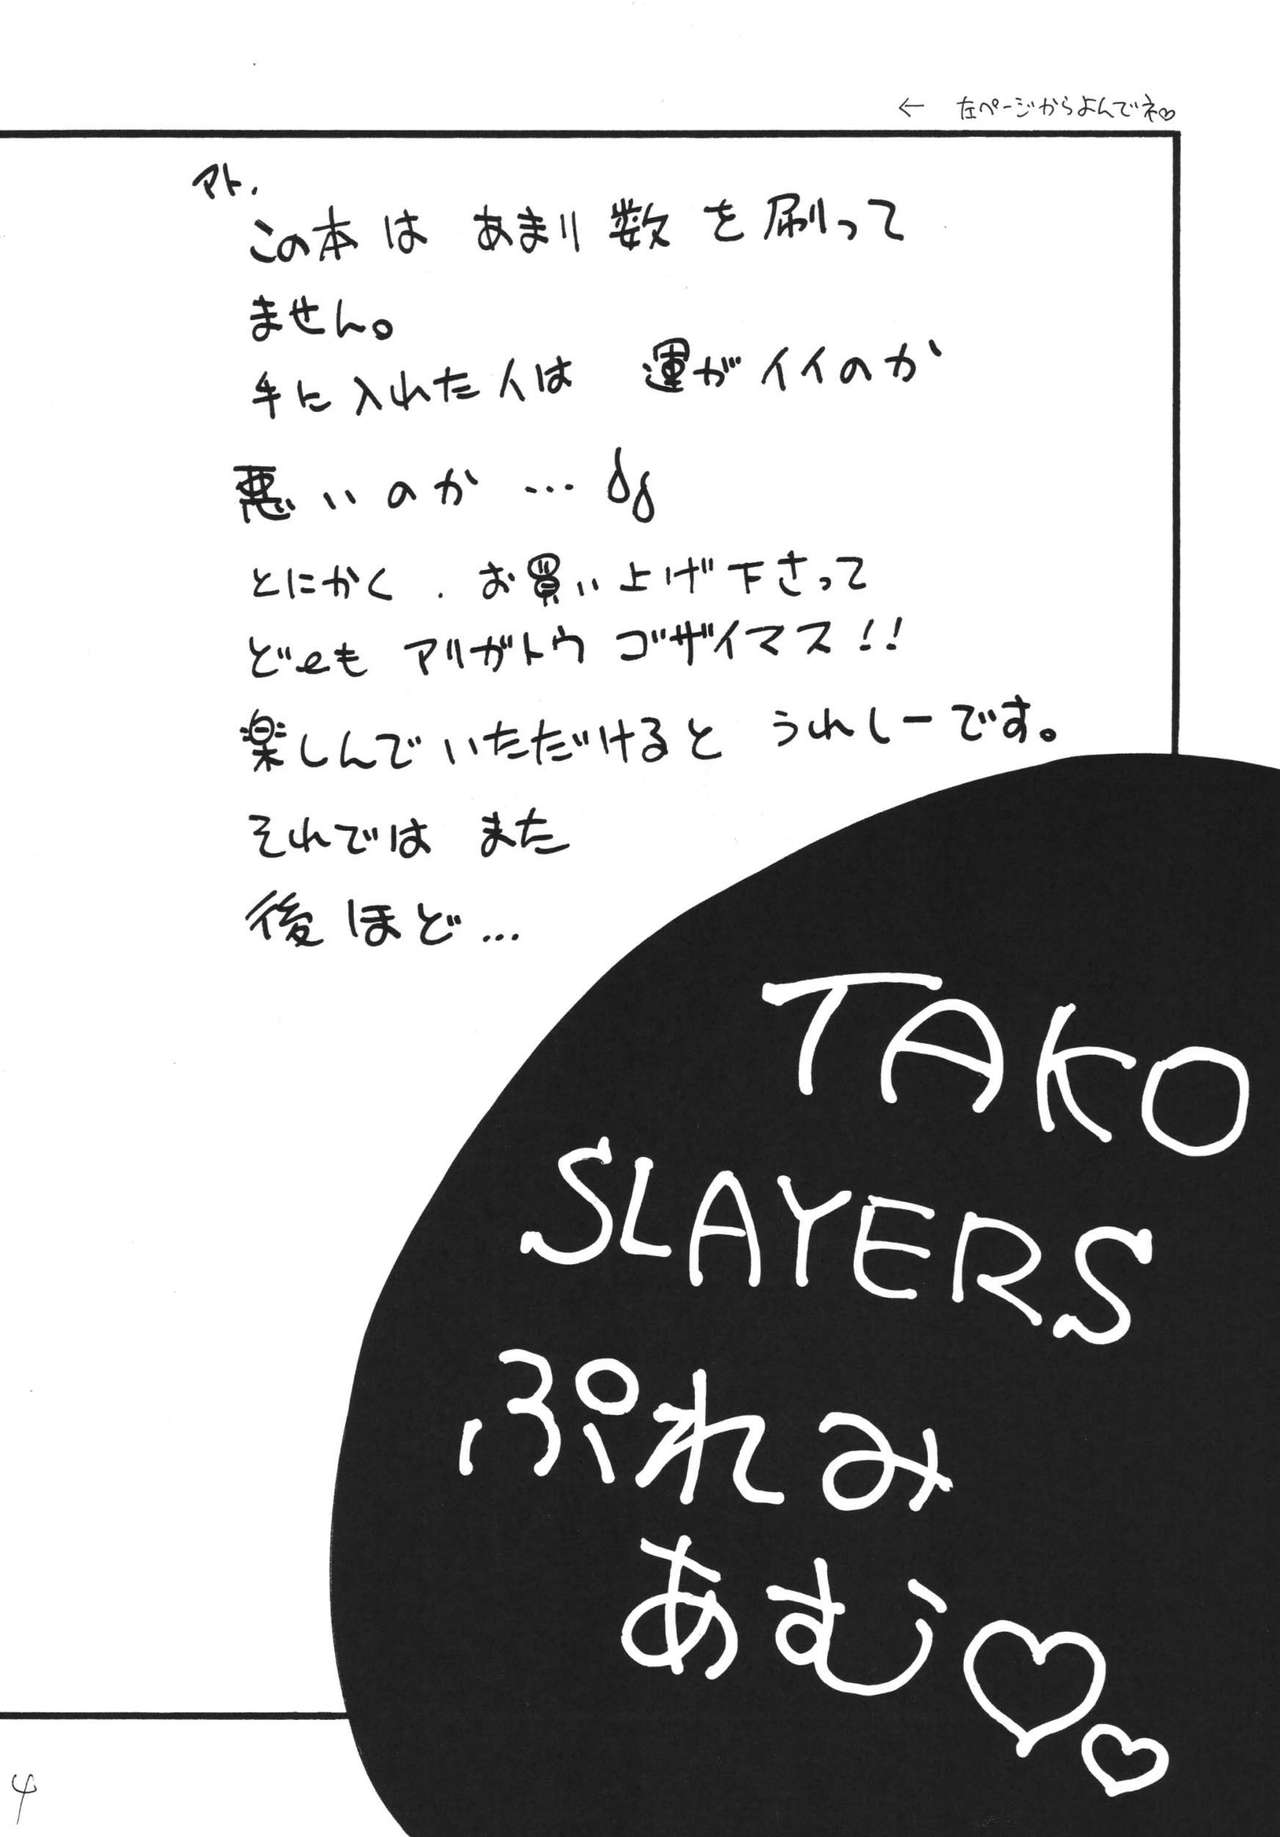 ← 左ページからよんでネ♡
アト、
この本は あまり数を刷って
ません。
手に入れた人は 運がイイのか
悪いのか …
とにかく、お買い上げ下さって
どーも アリガトウ ゴザイマス!!
楽しんでいただけると うれしーです。
それでは また
後ほど…
TAKO
SLAYERS
ぷれみ
あむ♡♡
4